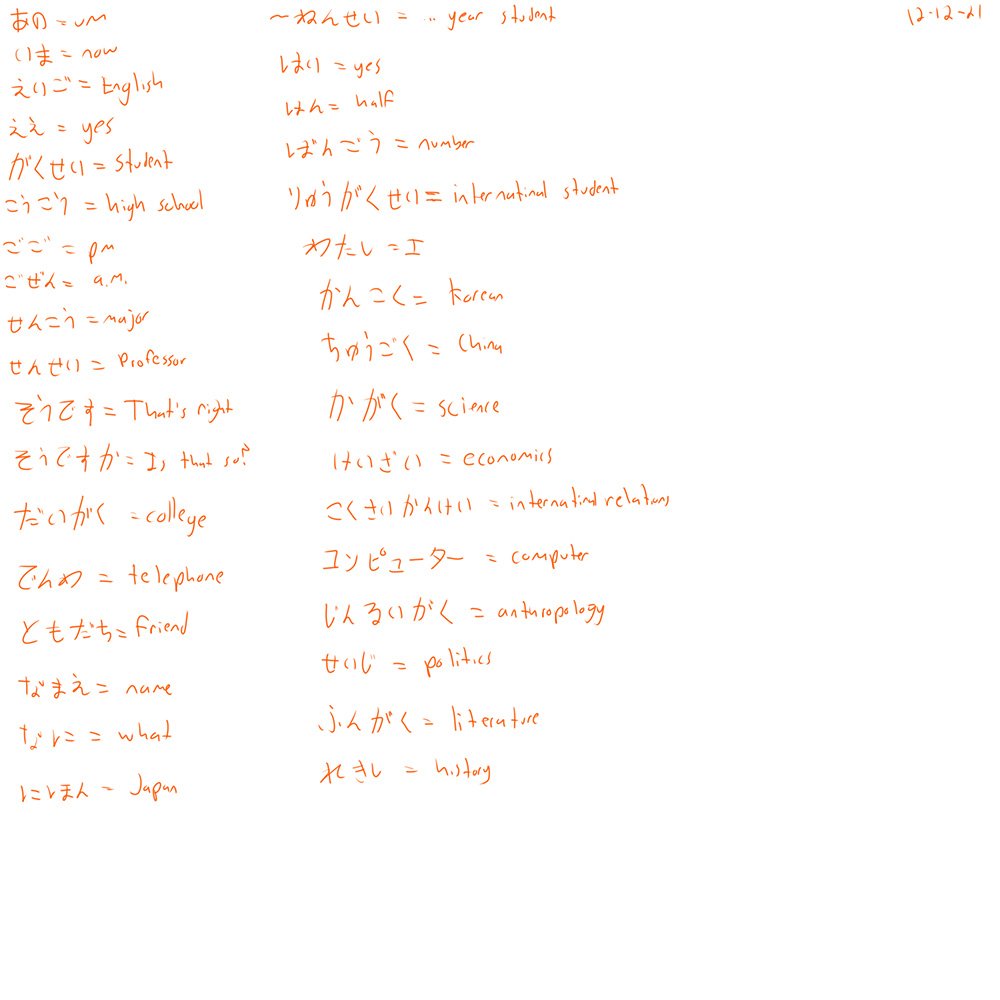 あの = um
いま = now
えいご = English
ええ = yes
がくせい = student
こうこう = high school
ごご = pm
ごぜん = a.m.
せんこう = major
せんせい = Professor
そうです = That's right
そうですか = Is that so?
だいがく = college
でんわ = telephone
ともだち = friend
なまえ = name
なに = what
にほん = Japan
～ねんせい = .. year student
はい = yes
はん = half
ばんごう = number
りゅうがくせい = internatinal student
わたし = I
かんこく = Korean
ちゅうごく = China
かがく = science
けいざい = economics
こくさいかんけい = internatinal relations
コンピューター = computer
じんるいがく = anthropology
せいじ = politics
ぶんがく = literature
れきし = history
12-12-21